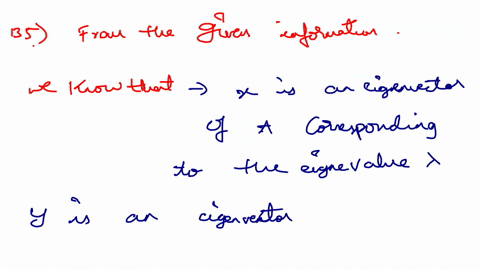 B5) From the Given information.
we Know that → x is an eigenvector
of A Corresponding
to the eigenvalue λ
y is an eigenvector